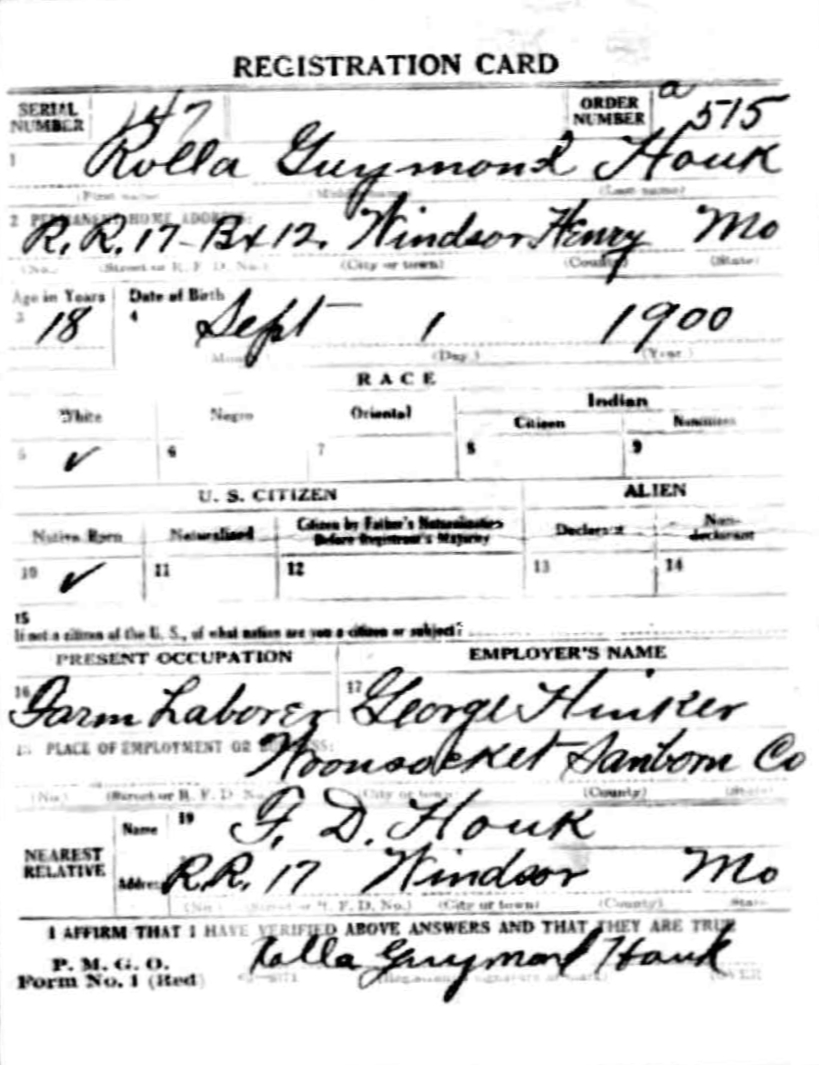 REGISTRATION CARD
SERIAL NUMBER 147 ORDER NUMBER a 515
1 Rolla Guymond Houk
(First name) (Middle name) (Last name)
2 PERMANENT HOME ADDRESS:
R.R. 17 - Bx 12. Windsor Henry Mo
(No.) (Street or R. F. D. No.) (City or town) (County) (State)
Age in Years Date of Birth
3 18 4 Sept 1 1900
(Month) (Day.) (Year.)
RACE
White Negro Oriental Indian
Citizen Noncitizen
5 ✓ 6 7 8 9
U. S. CITIZEN ALIEN
Native Born Naturalized Citizen by Father's Naturalization Before Registrant's Majority Declarant Non-declarant
10 ✓ 11 12 13 14
15
If not a citizen of the U. S., of what nation are you a citizen or subject?
PRESENT OCCUPATION EMPLOYER'S NAME
16 Farm Laborer 17 George Hinker
18 PLACE OF EMPLOYMENT OR BUSINESS:
Woonsocket Sanborn Co
(No.) (Street or R. F. D. No.) (City or town) (County) (State)
NEAREST RELATIVE
Name 19 F. D. Houk
Address R.R. 17 Windsor Mo
(No.) (Street or R. F. D. No.) (City or town) (County) State
I AFFIRM THAT I HAVE VERIFIED ABOVE ANSWERS AND THAT THEY ARE TRUE
P. M. G. O.
Form No. 1 (Red) Rolla Guymond Houk
(OVER)